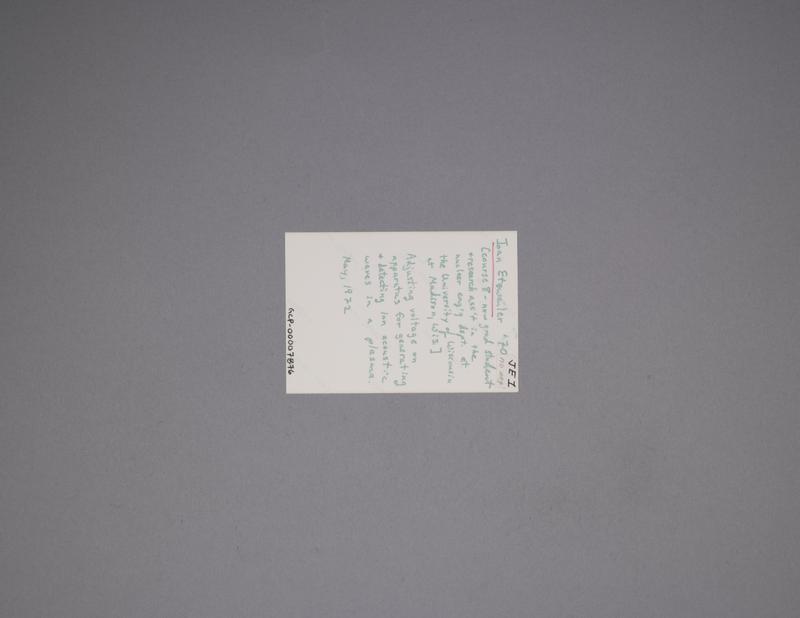 JEI
Joan Etzweiler '70 no neg.
[course 8 - now grad student
+ research ass't in the
nuclear eng'g dept. at
the University of Wisconsin
at Madison, Wis.]
Adjusting voltage on
apparatus for generating
+ detecting ion acoustic
waves in a plasma.
May, 1972
GCP-00007876